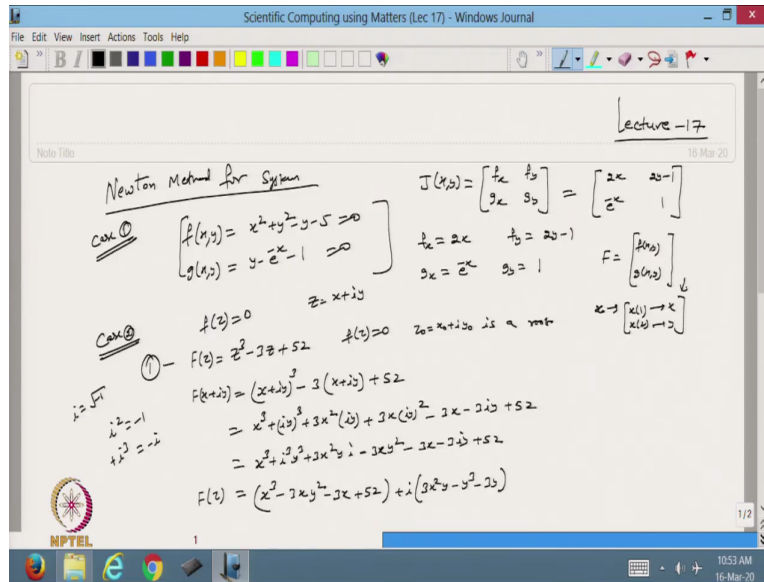 Scientific Computing using Matters (Lec 17) - Windows Journal
File Edit View Insert Actions Tools Help
B I
Lecture -17
Note Title
16-Mar-20
Newton Method for System
Case ①
f(x,y) = x²+y²-y-5 = 0
g(x,y) = y-e⁻ˣ-1 = 0
J(x,y) = [fx fy
gx gy] = [2x 2y-1
e⁻ˣ 1]
fx = 2x fy = 2y-1
gx = e⁻ˣ gy = 1
F = [f(x,y)
g(x,y)]
x → [x(1) → x
x(2) → y]
Case ②
f(z)=0 z = x+iy
① - F(z) = z³-3z+52 f(z)=0 z₀=x₀+iy₀ is a root
i=√-1
i²=-1
+i³=-i
F(x+iy) = (x+iy)³-3(x+iy)+52
= x³+(iy)³+3x²(iy)+3x(iy)²-3x-3iy+52
= x³+i³y³+3x²yi-3xy²-3x-3iy+52
F(z) = (x³-3xy²-3x+52)+i(3x²y-y³-3y)
NPTEL
1
1/2
10:53 AM
16-Mar-20